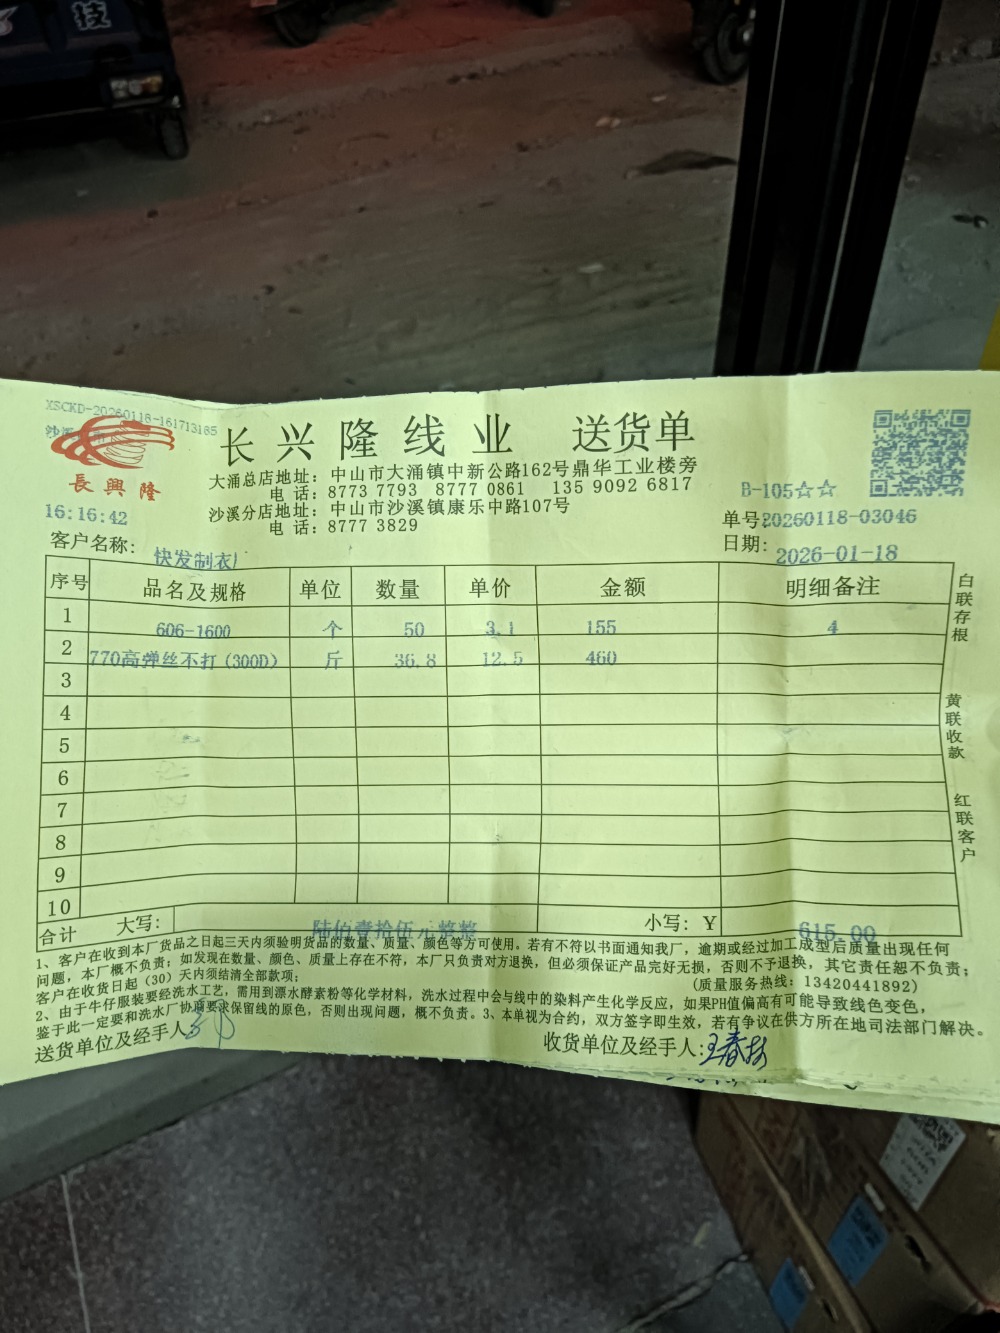 技
XSCKD-20260118-161713185
長興隆
16:16:42
长兴隆线业 送货单
大涌总店地址：中山市大涌镇中新公路162号鼎华工业楼旁
电 话：8773 7793 8777 0861 135 9092 6817
沙溪分店地址：中山市沙溪镇康乐中路107号
电 话：8777 3829
B-105☆☆
单号:20260118-03046
日期: 2026-01-18
客户名称： 快发制衣厂
序号 品名及规格 单位 数量 单价 金额 明细备注
1 606-1600 个 50 3.1 155 4
2 770高弹丝不打(300D) 斤 36.8 12.5 460
3
4
5
6
7
8
9
10
合计 大写： 陆佰壹拾伍元整整 小写：Y 615.00
白联存根
黄联收款
红联客户
1、客户在收到本厂货品之日起三天内须验明货品的数量、质量、颜色等方可使用。若有不符以书面通知我厂，逾期或经过加工成型后质量出现任何
问题，本厂概不负责；如发现在数量、颜色、质量上存在不符，本厂只负责对方退换，但必须保证产品完好无损，否则不予退换，其它责任恕不负责；
客户在收货日起（30）天内须结清全部款项； (质量服务热线：13420441892)
2、由于牛仔服装要经洗水工艺，需用到漂水酵素粉等化学材料，洗水过程中会与线中的染料产生化学反应，如果PH值偏高有可能导致线色变色，
鉴于此一定要和洗水厂协商要求保留线的原色，否则出现问题，概不负责。3、本单视为合约，双方签字即生效，若有争议在供方所在地司法部门解决。
送货单位及经手人:
收货单位及经手人: 王春